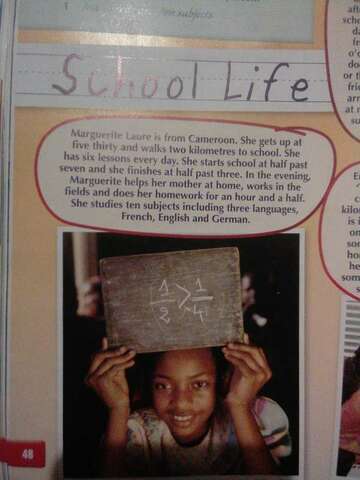 subjects
School Life
Marguerite Laure is from Cameroon. She gets up at
five thirty and walks two kilometres to school. She
has six lessons every day. She starts school at half past
seven and she finishes at half past three. In the evening,
Marguerite helps her mother at home, works in the
fields and does her homework for an hour and a half.
She studies ten subjects including three languages,
French, English and German.
1/2 > 1/4
48